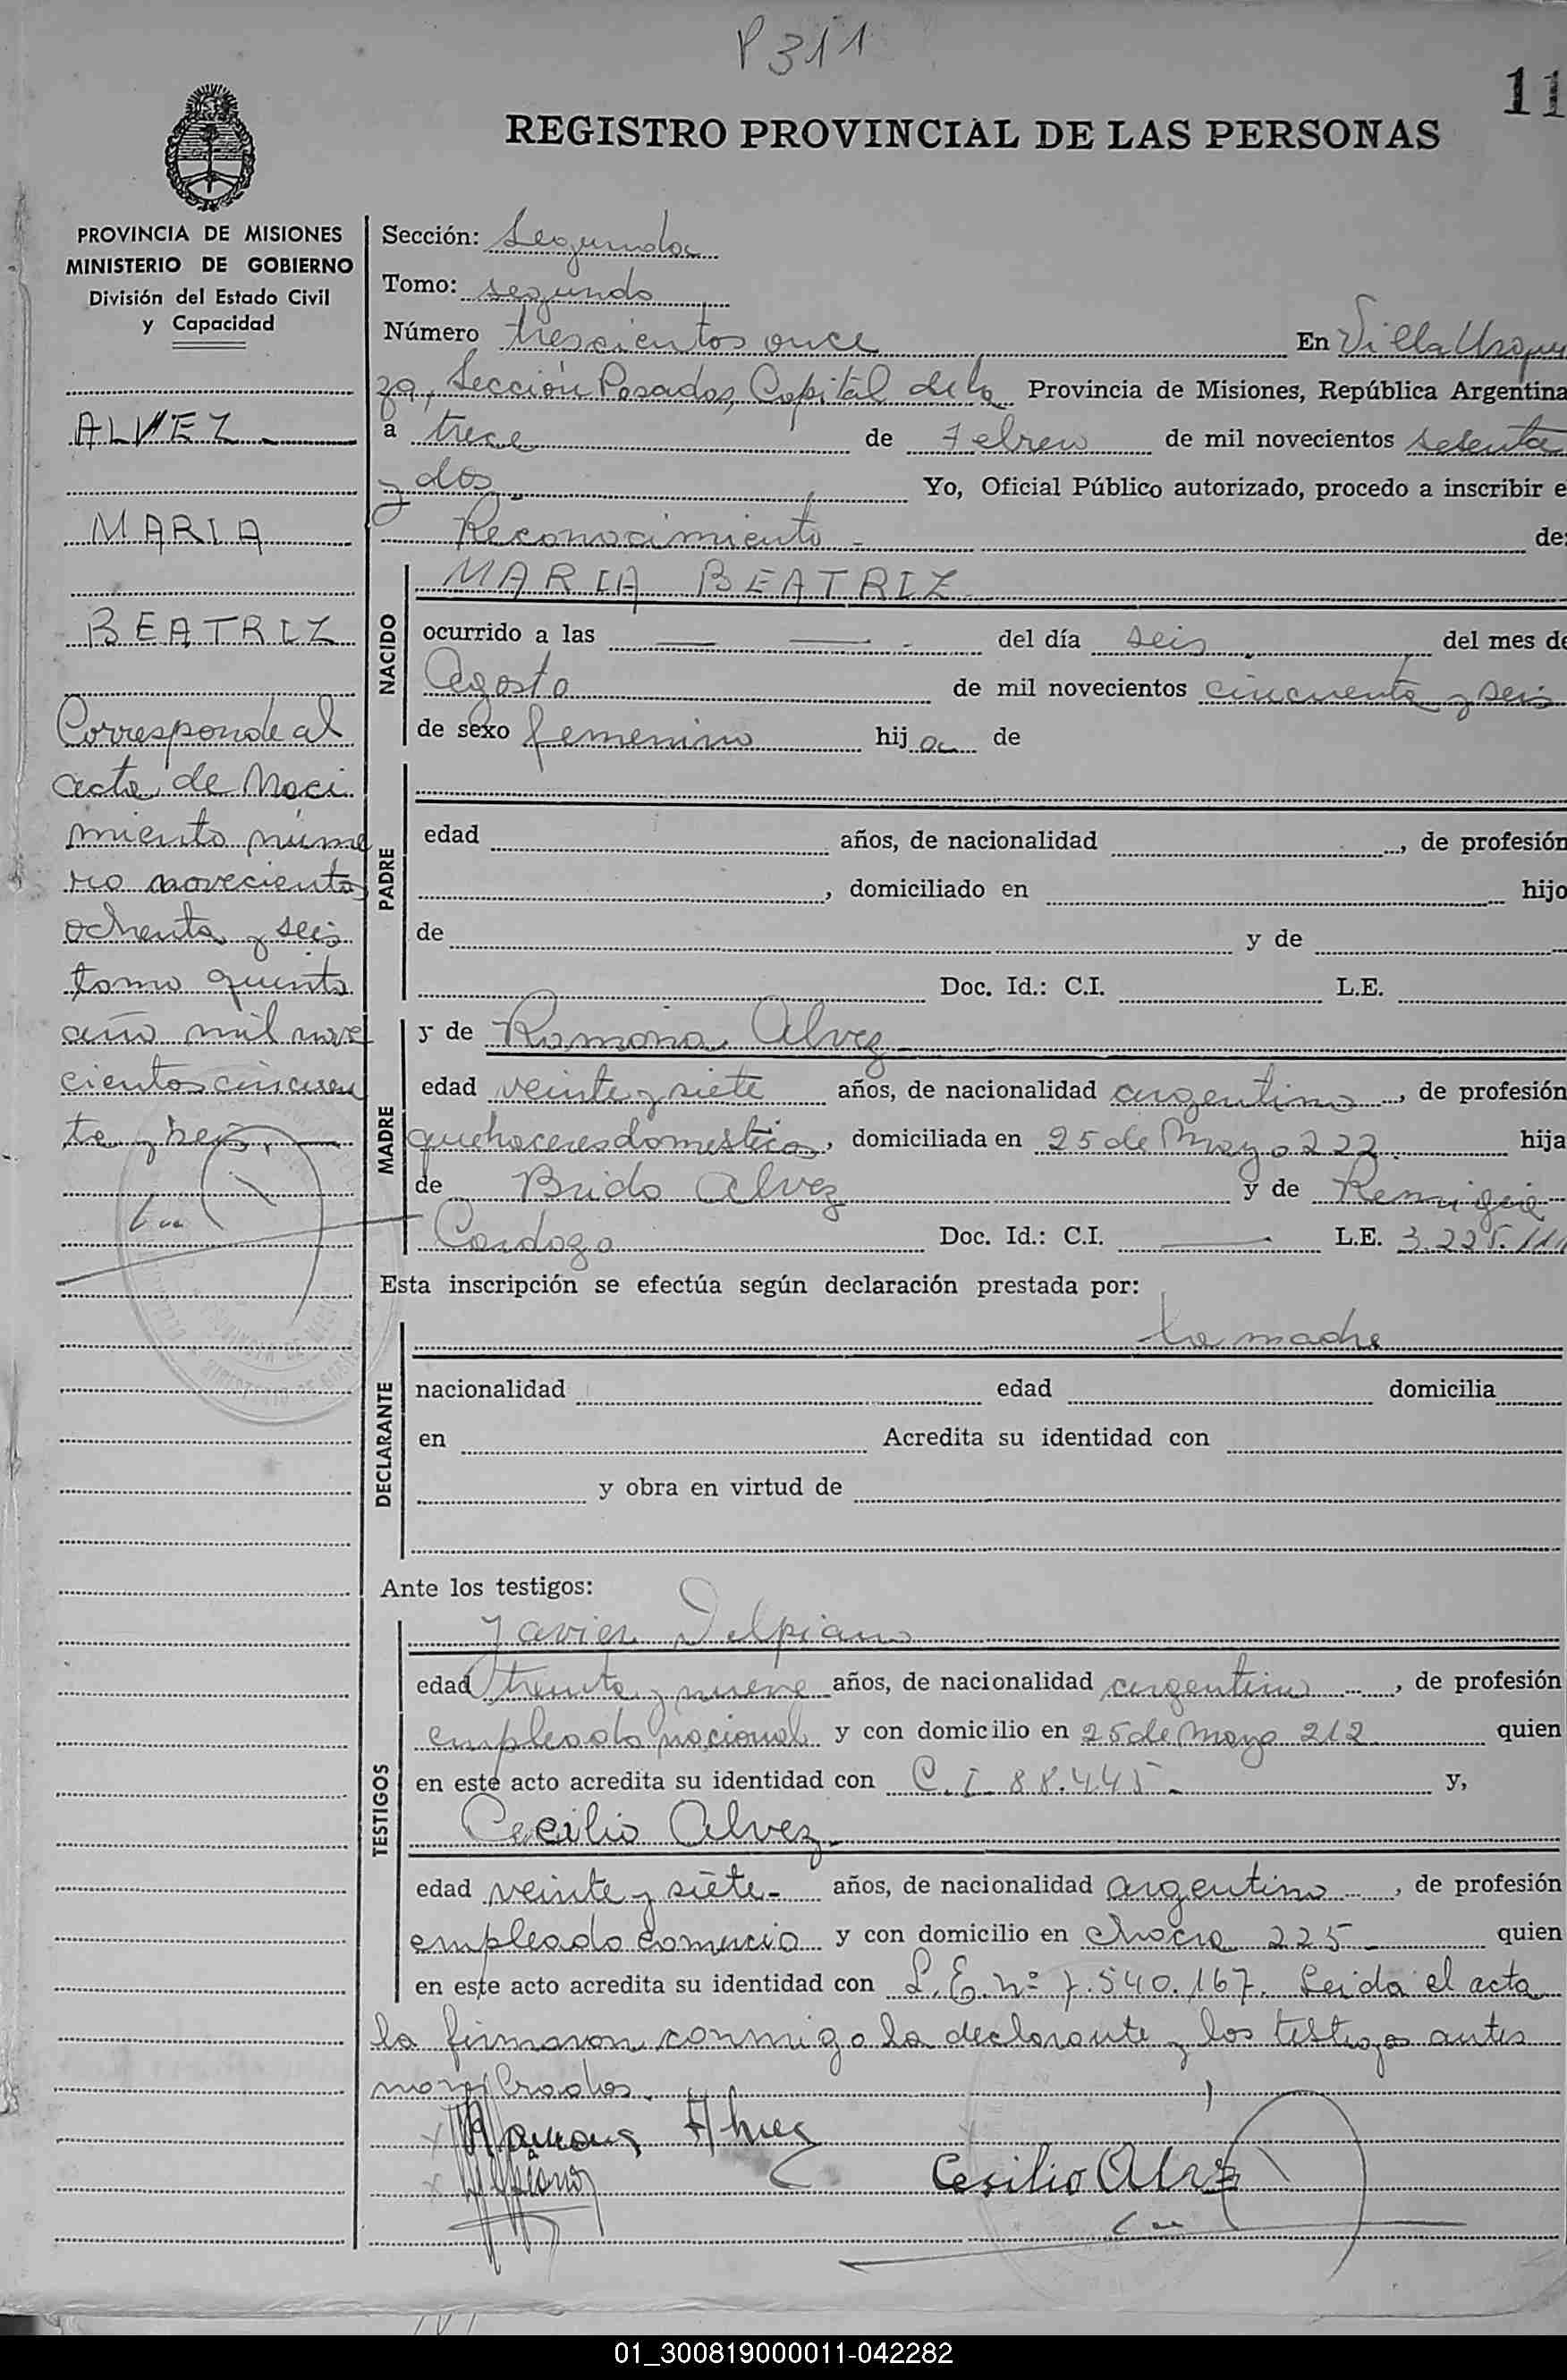 P 311
11
REGISTRO PROVINCIAL DE LAS PERSONAS
PROVINCIA DE MISIONES
MINISTERIO DE GOBIERNO
División del Estado Civil
y Capacidad
ALVEZ
MARIA
BEATRIZ
Corresponde al
acta de Naci
miento núme
ro novecientos
ochenta y seis
tomo quinto
año mil nove
cientos cincuen
ta y seis.
Sección: Segunda
Tomo: segundo
Número trescientos once En Villa Urqui
za, Sección Posadas, Capital de la Provincia de Misiones, República Argentina
a trece de Febrero de mil novecientos setenta
y dos Yo, Oficial Público autorizado, procedo a inscribir e
Reconocimiento de:
NACIDO
MARIA BEATRIZ
ocurrido a las del día seis del mes de
Agosto de mil novecientos cincuenta y seis
de sexo femenino hij a de
PADRE
edad años, de nacionalidad , de profesión
, domiciliado en hijo
de y de
Doc. Id.: C.I. L.E.
MADRE
y de Ramona Alvez
edad veinte y siete años, de nacionalidad argentina, de profesión
quehaceres domesticos, domiciliada en 25 de Mayo 222 hija
de Brido Alvez y de Remigia
Cardozo Doc. Id.: C.I. L.E. 3.225.111
Esta inscripción se efectúa según declaración prestada por:
DECLARANTE
la madre
nacionalidad edad domicilia
en Acredita su identidad con
y obra en virtud de
Ante los testigos:
TESTIGOS
Javier Delpiano
edad treinta y nueve años, de nacionalidad argentino, de profesión
empleado nacional y con domicilio en 25 de Mayo 212 quien
en este acto acredita su identidad con C.I. 88.445 y,
Cecilio Alvez
edad veinte y siete años, de nacionalidad argentino, de profesión
empleado comercio y con domicilio en chacra 225 quien
en este acto acredita su identidad con L.E. nº 7.540.167. Leida el acta
la firmaron conmigo la declarante y los testigos antes
nombrados.
Ramona Alvez
Delpiano
Cecilio Alvez
01_300819000011-042282